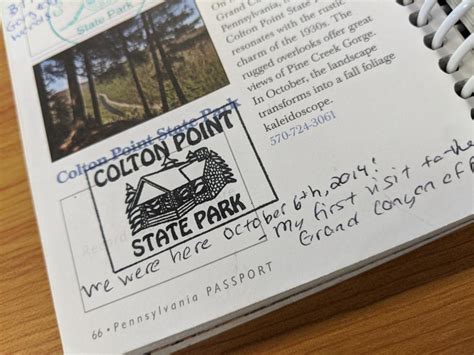 State Park
On
Grand C
Pennsylvania,
Colton Point State
resonates with the rustic
charm of the 1930s. The
rugged overlooks offer great
views of Pine Creek Gorge.
In October, the landscape
transforms into a fall foliage
kaleidoscope.
570-724-3061
Colton Point State Park
COLTON POINT
STATE PARK
we were here October 6th, 2014!
- My first visit to the
Grand Canyon of P
66 • Pennsylvania PASSPORT